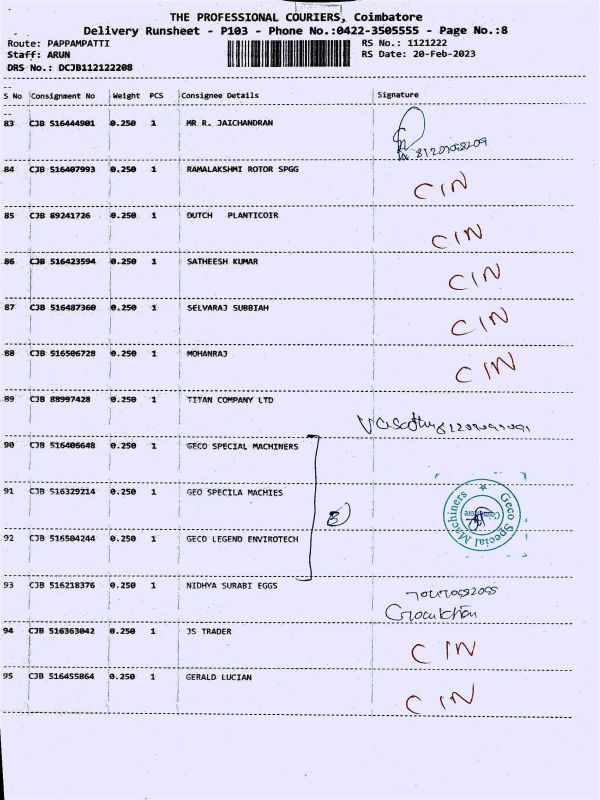 THE PROFESSIONAL COURIERS, Coimbatore
Delivery Runsheet - P103 - Phone No.:0422-3505555 - Page No.:8
Route: PAPPAMPATTI RS No.: 1121222
Staff: ARUN RS Date: 20-Feb-2023
DRS No.: DCJB112122208
S No Consignment No Weight PCS Consignee Details Signature
83 CJB 516444901 0.250 1 MR R. JAICHANDRAN
84 CJB 516407993 0.250 1 RAMALAKSHMI ROTOR SPGG CIN
85 CJB 89241726 0.250 1 DUTCH PLANTICOIR CIN
86 CJB 516423594 0.250 1 SATHEESH KUMAR CIN
87 CJB 516487360 0.250 1 SELVARAJ SUBBIAH CIN
88 CJB 516506728 0.250 1 MOHANRAJ CIN
89 CJB 88997428 0.250 1 TITAN COMPANY LTD
90 CJB 516406648 0.250 1 GECO SPECIAL MACHINERS
91 CJB 516329214 0.250 1 GEO SPECILA MACHIES
92 CJB 516504244 0.250 1 GECO LEGEND ENVIROTECH
Geco Special Machiners
Coimbatore
93 CJB 516218376 0.250 1 NIDHYA SURABI EGGS
94 CJB 516363042 0.250 1 JS TRADER CIN
95 CJB 516455864 0.250 1 GERALD LUCIAN CIN